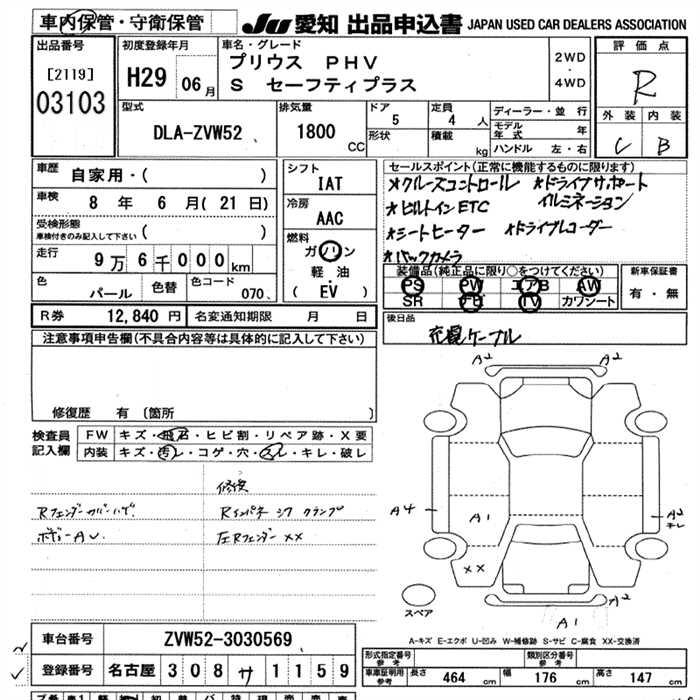 車内保管・守衛保管
JU 愛知 出品申込書 JAPAN USED CAR DEALERS ASSOCIATION
出品番号
[2119]
03103
初度登録年月
H29 06月
車名・グレード
プリウス PHV
S セーフティプラス
2WD
・
4WD
評価点
R
外装 内装
C B
型式
DLA-ZVW52
排気量
1800
CC
ドア
5
定員
4 人
形状
積載
kg
ディーラー・並行
モデル年式 年
ハンドル 左・右
車歴
自家用・( )
車検
8 年 6 月(21 日)
受検形態
車検付きのみ記入して下さい ( )
走行
9万6千000km
色
パール
色替
色コード
070
シフト
IAT
冷房
AAC
燃料
ガソリン
軽油
・
( EV )
セールスポイント(正常に機能するものに限ります)
*クルーズコントロール *ドライブサポート
*ビルトインETC イルミネーション
*シートヒーター *ドライブレコーダー
*バックカメラ
装備品(純正品に限り○をつけてください)
PS PW エアB AW
SR ナビ TV カワシート
新車保証書
有・無
R券 12,840 円 名変通知期限 月 日
後日品
充電ケーブル
注意事項申告欄(不具合内容等は具体的に記入して下さい)
修復歴 有 〔箇所 〕
検査員
記入欄
FW キズ・飛石・ヒビ割・リペア跡・X要
内装 キズ・汚レ・コゲ・穴・スレ・キレ・破レ
修復
Rフェンダーカバーハズ Rインパネ シワ クランプ
ボデーAU 左Rフェンダー XX
A2 A2
A4 A1 A2
キレ
XX
スペア
A2
A1
A-キズ E-エクボ U-凹み W-補修跡 S-サビ C-腐食 XX-交換済
車台番号 ZVW52-3030569
登録番号 名古屋 308 サ 1159
形式指定番号
参考
類別区分番号
参考
車庫証明用
参考
長さ 464 cm 幅 176 cm 高さ 147 cm